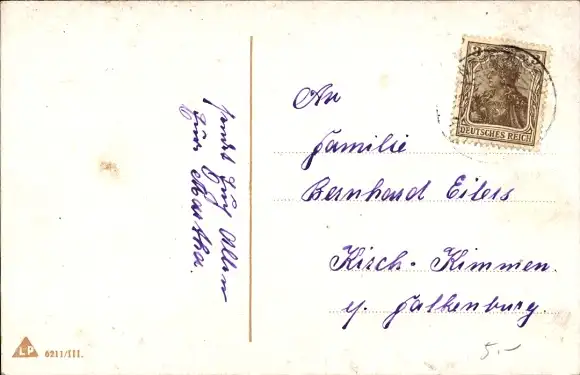 sendet Euch Allen
Eure Martha.
An
Familie
Bernhard Eilers
Kirch-Kimmen.
b. Falkenburg.
3
DEUTSCHES REICH
LP 6211/III.
5.-